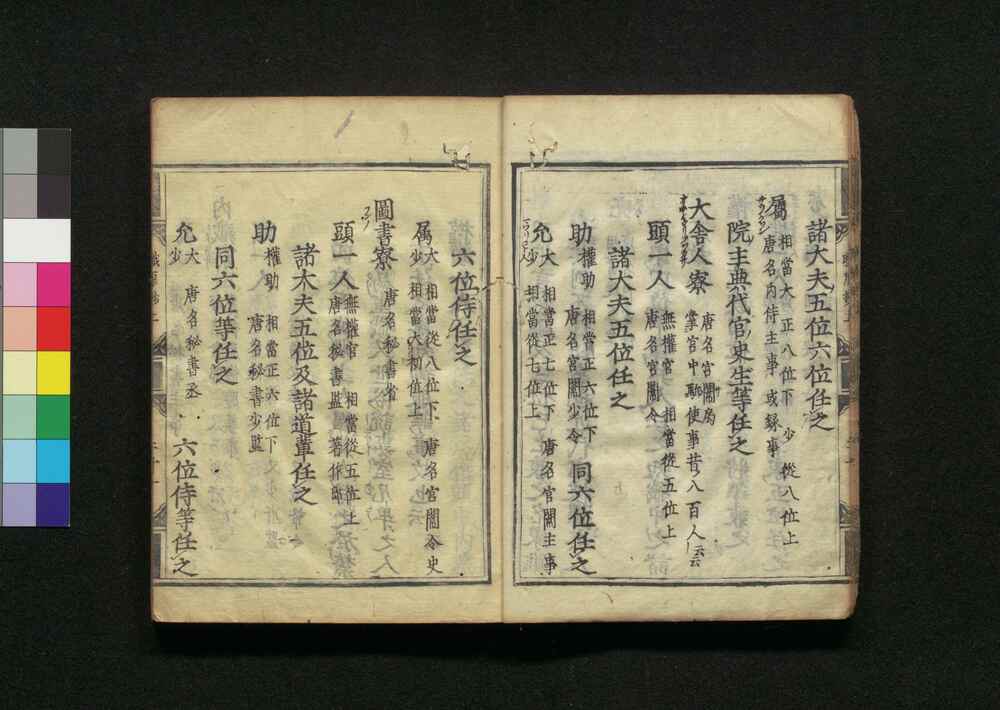 諸大夫五位六位任之
属 相當大 正八位下 少 従八位上
唐名内侍主事 或録事
院主典代官史生等任之
大舎人寮 唐名宮闈局
掌宮中駈使事昔八百人云云
頭一人 無權官 相當従五位上
唐名宮闈令
諸大夫五位任之
助 權助 相當正六位下
唐名宮闈少令 同六位任之
允 大 相當正七位下 唐名宮闈主事
少 相當従七位上
六位侍任之
属 大 相當従八位下 唐名宮闈令史
少 相當大初位上
圖書寮 唐名秘書省
頭一人 無權官 相當従五位上
唐名秘書監 著作郎
諸大夫五位及諸道輩任之
助 權助 相當正六位下
唐名秘書少監
同六位等任之
允 大
少 唐名秘書丞 六位侍等任之